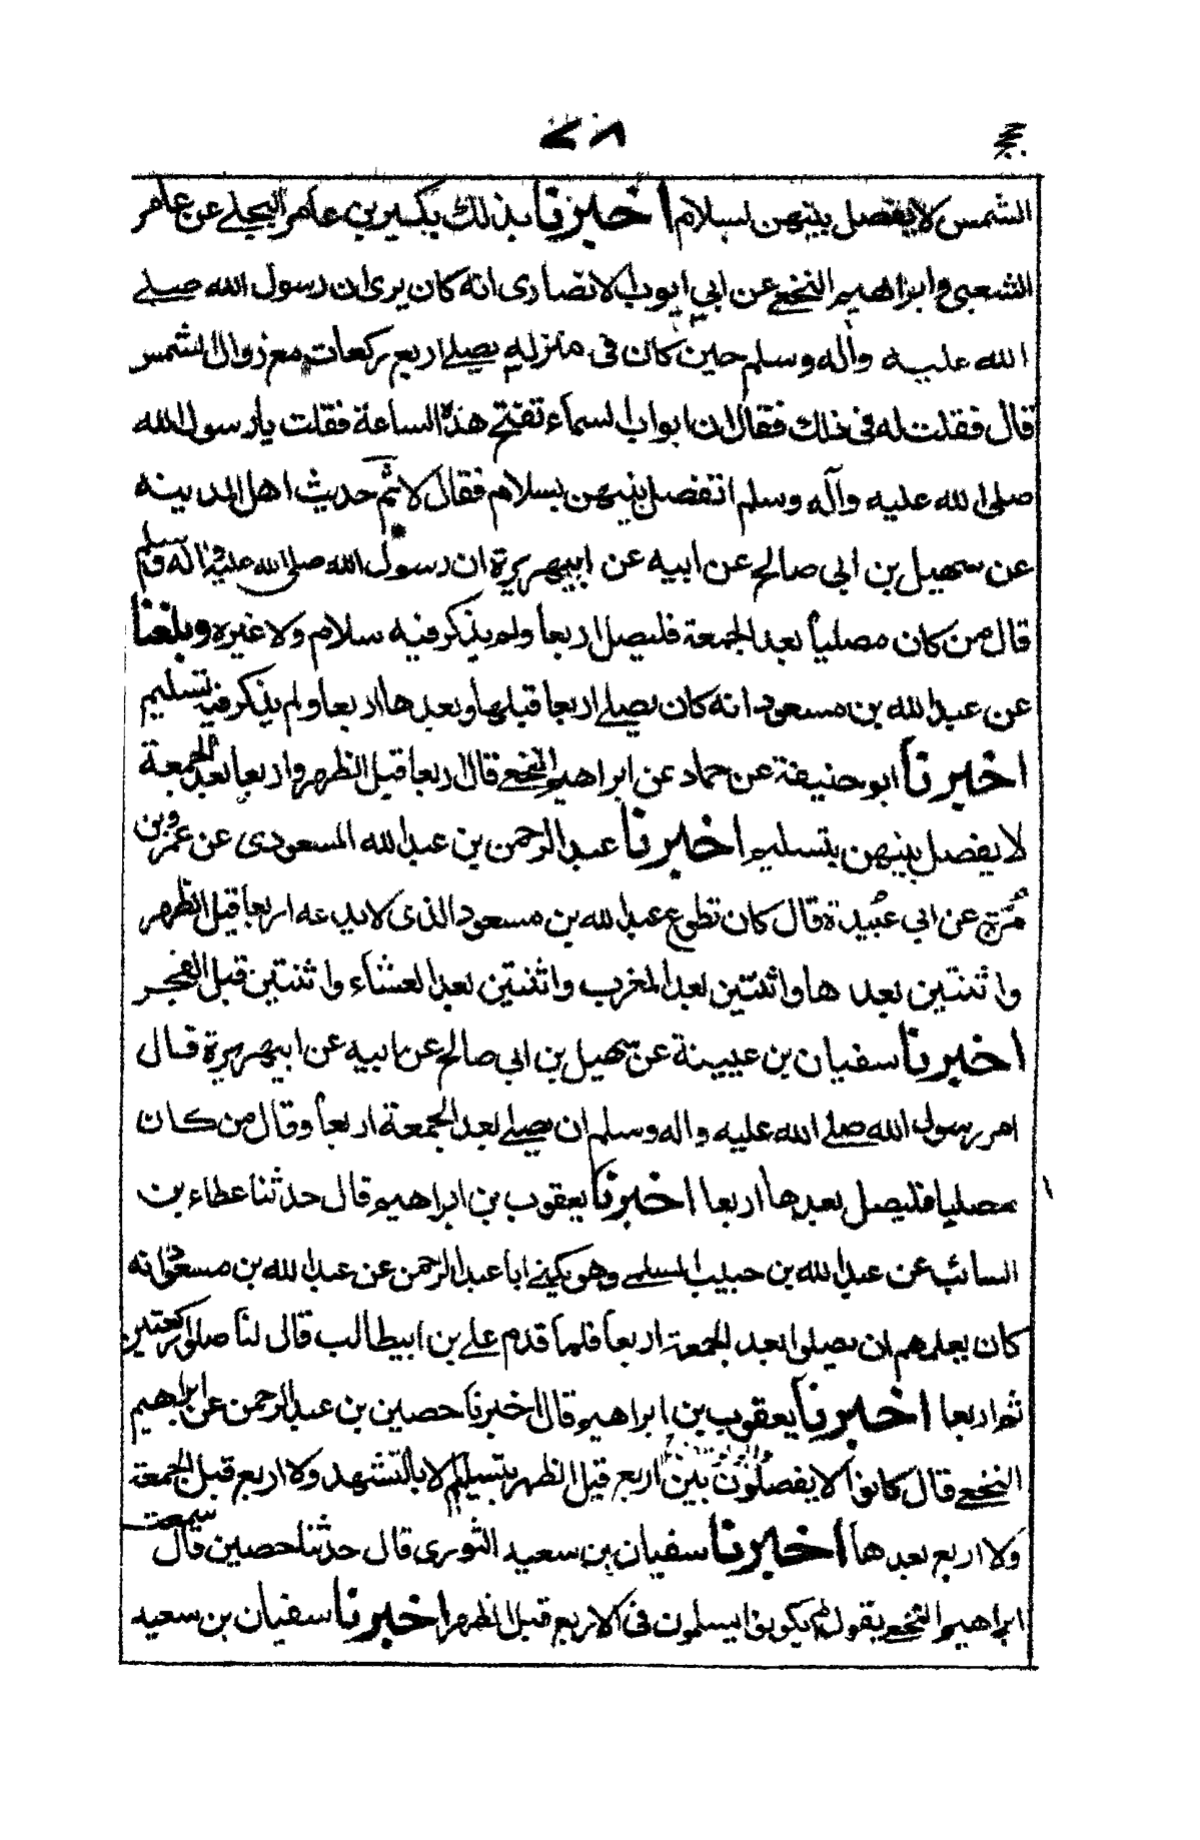 ٧٨
الشمس لا يفصل بينهن بسلام اخبرنا بذلك بكير بن عامر البجلي عن عامر
الشعبي وابراهيم النخعي عن ابي ايوب الانصاري انه كان يرى ان رسول الله صلى
الله عليه وآله وسلم حين كان في منزله يصلي اربع ركعات مع زوال الشمس
قال فقلت له في ذلك فقال ان ابواب السماء تفتح هذه الساعة فقلت يا رسول الله
صلى الله عليه وآله وسلم اتفصل بينهن بسلام فقال لا ثم حديث اهل المدينة
عن سهيل بن ابي صالح عن ابيه عن ابيهريرة ان رسول الله صلى الله عليه وآله وسلم
قال من كان مصلياً بعد الجمعة فليصل اربعا ولم يذكر فيه سلام ولا غيره وبلغنا
عن عبد الله بن مسعود انه كان يصلي اربعا قبلها وبعدها اربعا ولم يذكر فيه تسليم
اخبرنا ابو حنيفة عن حماد عن ابراهيم النخعي قال اربعا قبل الظهر واربعا بعد الجمعة
لا يفصل بينهن بتسليم اخبرنا عبد الرحمن بن عبد الله المسعودي عن عمرو بن
مُرّة عن ابي عُبيدة قال كان تطوع عبد الله بن مسعود الذي لا يدعه اربعا قبل الظهر
واثنتين بعدها واثنتين بعد المغرب واثنتين بعد العشاء واثنتين قبل الفجر
اخبرنا سفيان بن عيينة عن سهيل بن ابي صالح عن ابيه عن ابيهريرة قال
امر رسول الله صلى الله عليه واله وسلم ان يصلي بعد الجمعة اربعاً وقال من كان
مصليا فليصل بعدها اربعا اخبرنا يعقوب بن ابراهيم قال حدثنا عطاء بن
السائب عن عبد الله بن حبيب السلمي وهو يكنى ابا عبد الرحمن عن عبد الله بن مسعود انه
كان يعلمهم ان يصلوا بعد الجمعة اربعاً فلما قدم علي بن ابيطالب قال لنا صلوا ركعتين
ثم اربعا اخبرنا يعقوب بن ابراهيم قال اخبرنا حصين بن عبد الرحمن عن ابراهيم
النخعي قال كانوا لا يفصلون بين اربع قبل الظهر بتسليم الا بالتشهد ولا اربع قبل الجمعة
ولا اربع بعدها اخبرنا سفيان بن سعيد الثوري قال حدثنا حصين قال سمعت
ابراهيم النخعي يقول لم يكونوا يسلمون في الاربع قبل الظهر اخبرنا سفيان بن سعيد